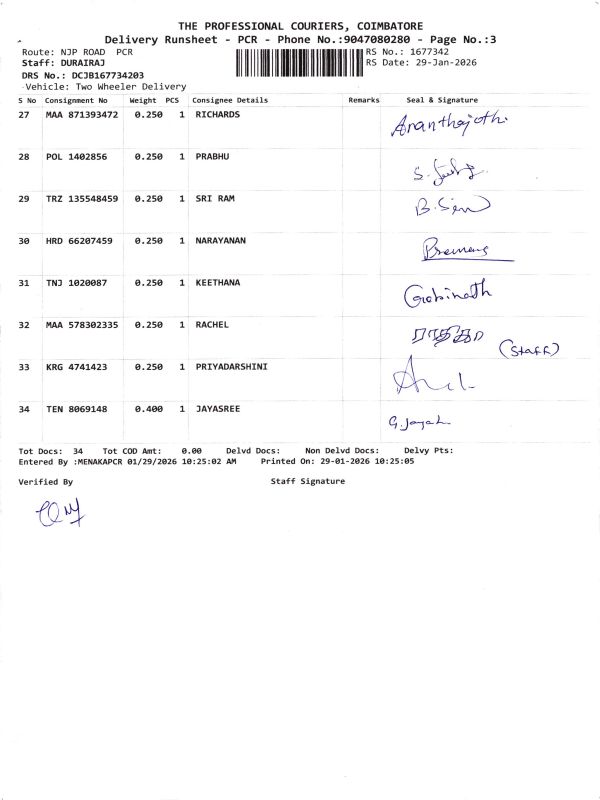 THE PROFESSIONAL COURIERS, COIMBATORE
Delivery Runsheet - PCR - Phone No.:9047080280 - Page No.:3
Route: NJP ROAD PCR RS No.: 1677342
Staff: DURAIRAJ RS Date: 29-Jan-2026
DRS No.: DCJB167734203
Vehicle: Two Wheeler Delivery
S No Consignment No Weight PCS Consignee Details Remarks Seal & Signature
27 MAA 871393472 0.250 1 RICHARDS Ananthajothi
28 POL 1402856 0.250 1 PRABHU
29 TRZ 135548459 0.250 1 SRI RAM
30 HRD 66207459 0.250 1 NARAYANAN
31 TNJ 1020087 0.250 1 KEETHANA Gobinath
32 MAA 578302335 0.250 1 RACHEL
(Staff)
33 KRG 4741423 0.250 1 PRIYADARSHINI
34 TEN 8069148 0.400 1 JAYASREE
Tot Docs: 34 Tot COD Amt: 0.00 Delvd Docs: Non Delvd Docs: Delvy Pts:
Entered By :MENAKAPCR 01/29/2026 10:25:02 AM Printed On: 29-01-2026 10:25:05
Verified By Staff Signature